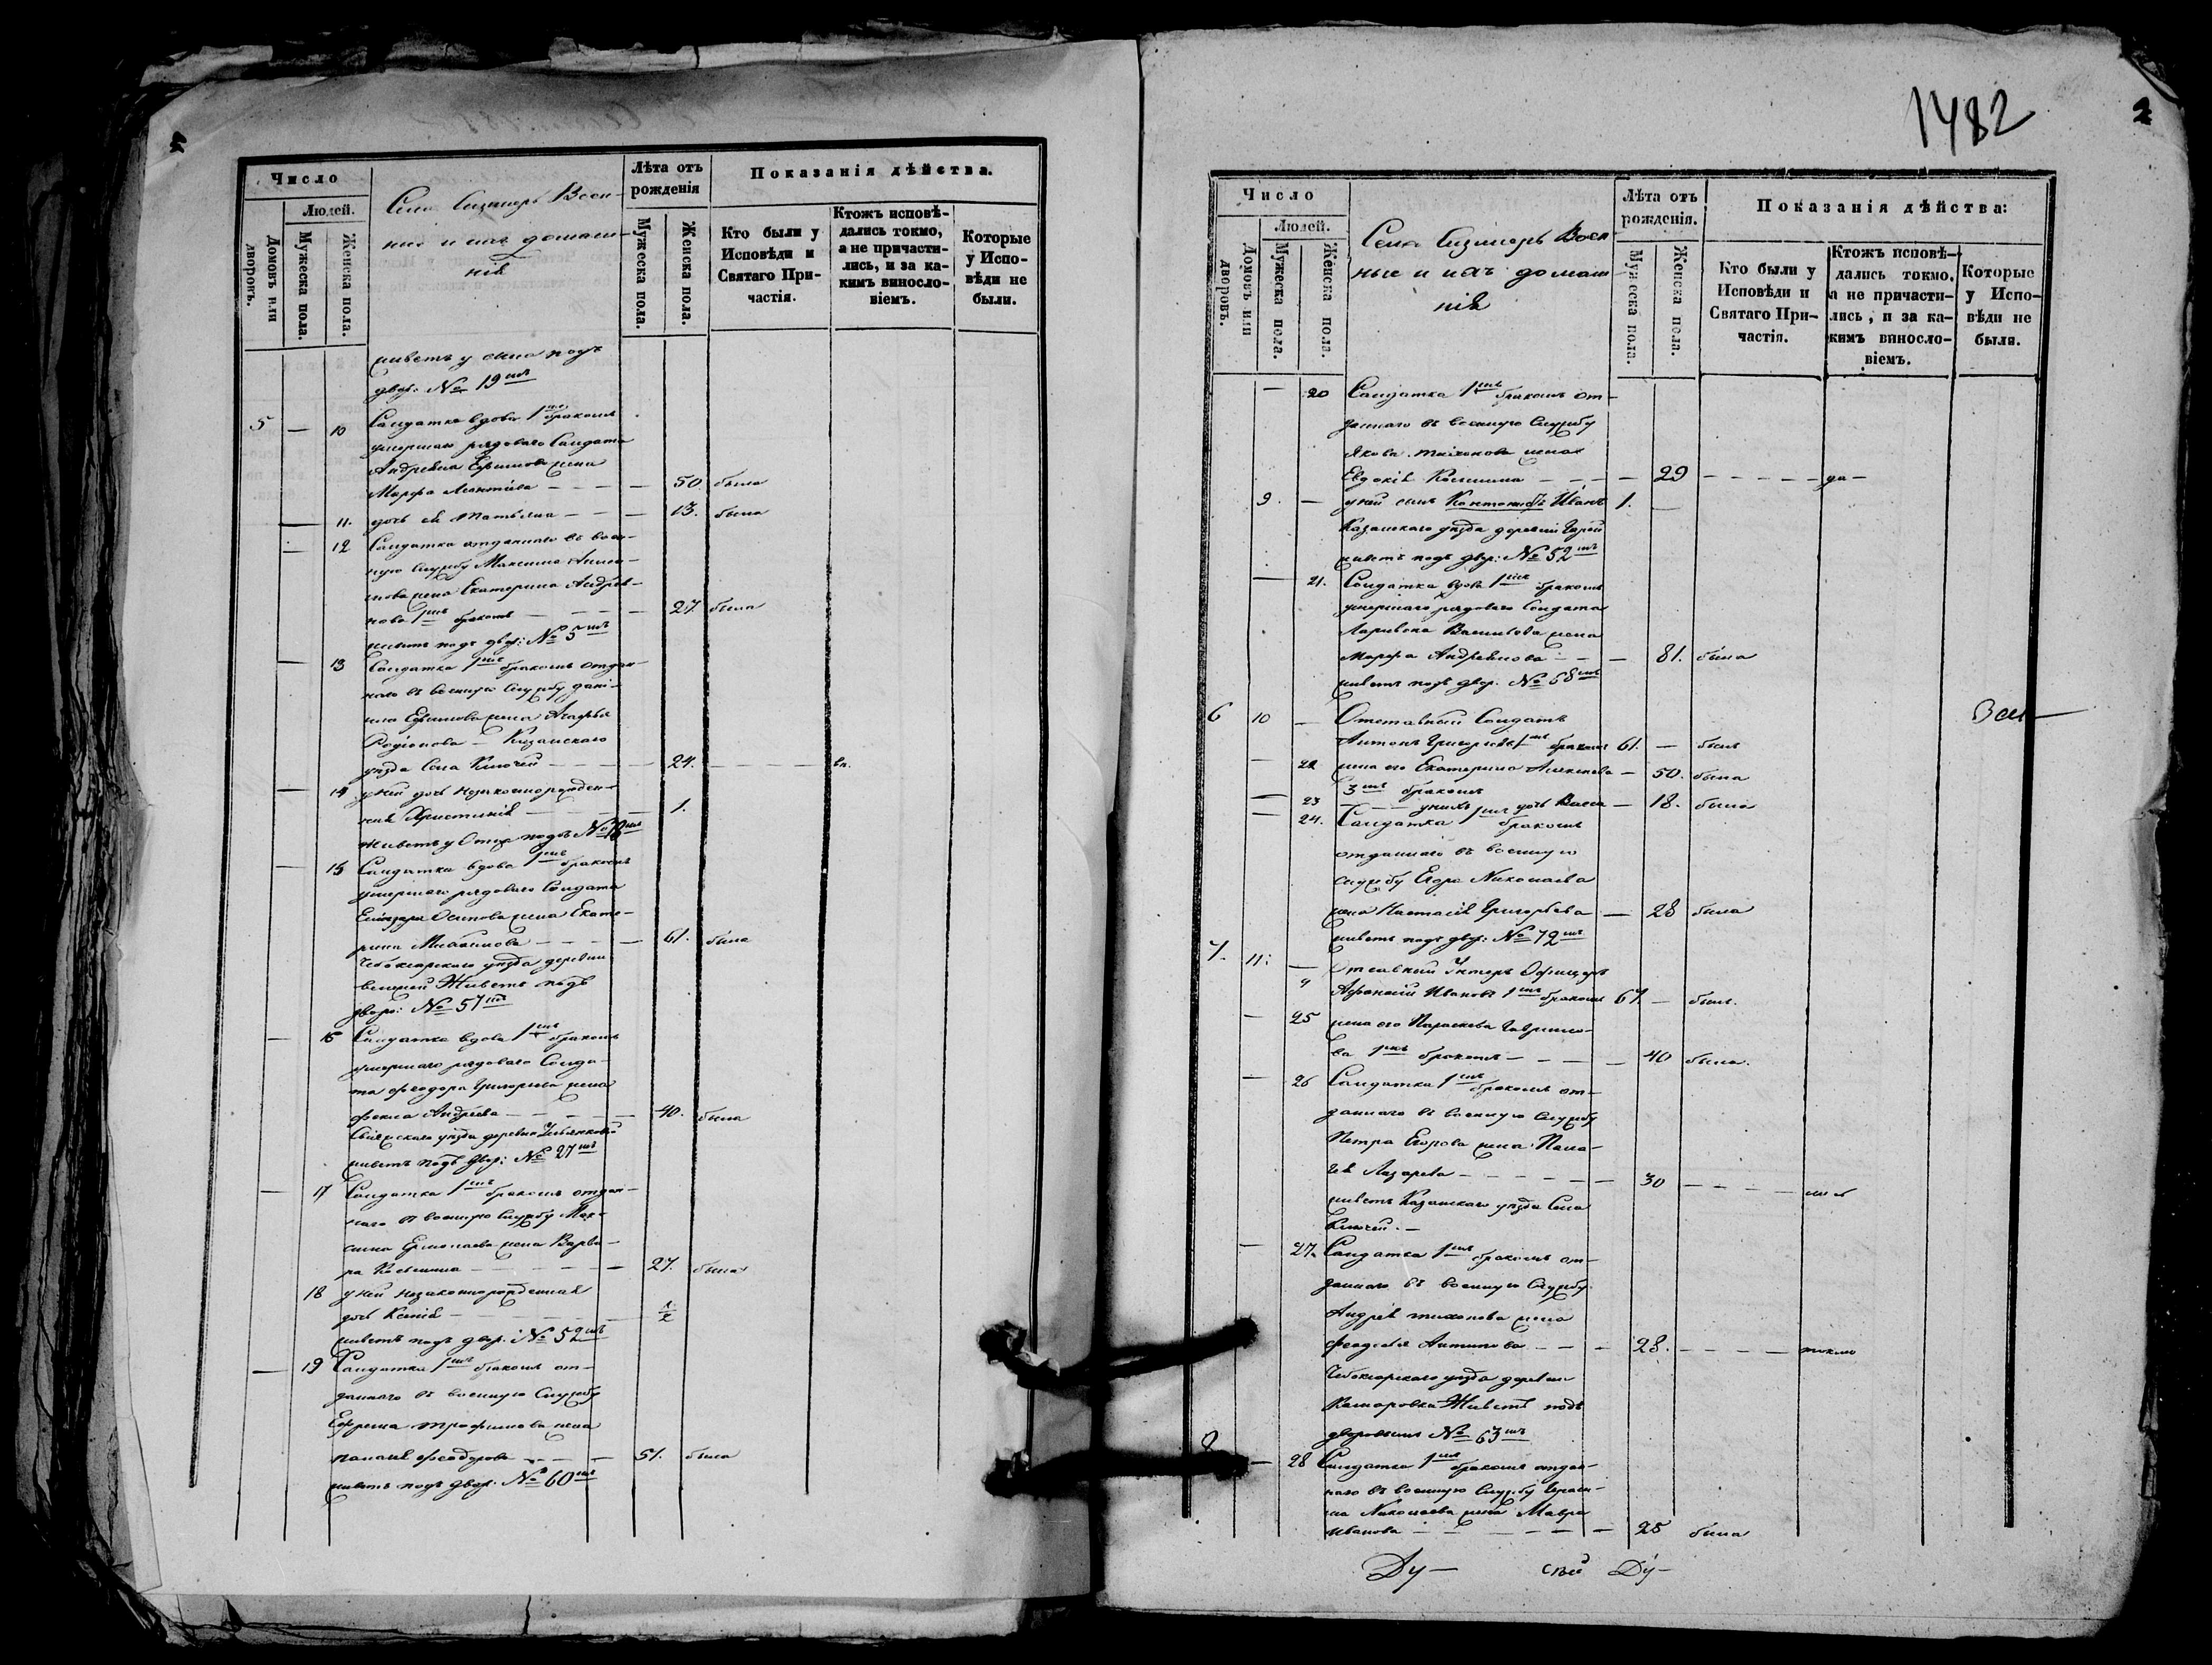 Число
Людей.
Домовъ или дворовъ.
Мужеска пола.
Женска пола.
Села Воен-
ніе и ихъ домаш-
нія
Лѣта отъ рожденія
Мужеска пола.
Женска пола.
Показанія дѣйства.
Кто были у Исповѣди и Святаго При-частія.
Ктожъ исповѣ-дались токмо, а не причасти-лись, и за ка-кимъ винословіемъ.
Которые у Испо-вѣди не были.
живетъ у сына подъ
двор: № 19мъ
5 — 10 Салдатка вдова 1мъ бракомъ
умершаго рядоваго Салдата
Андреяна Ефимова жена
Марфа Леонтіева — — — 50 была
— 11. дочь ея Татьяна — — — 13. была
— 12 Салдатка отданнаго въ воен-
ную службу Максима
жена Екатерина Андрея-
нова 1мъ бракомъ — — — 27 была
живетъ подъ двор: № 5мъ
— 13 Салдатка 1мъ бракомъ отдан-
наго въ военную службу Дані-
ила Ефимова жена Агафья
Родіонова — Казанскаго
уѣзда Села Ключей — — — 24. — — —
— 14 у ней дочь незаконнорожден-
ная Христинія — — 1.
живетъ у Отца подъ №
— 15 Салдатка вдова 1мъ бракомъ
умершаго рядоваго Солдата
Осипова жена Екате-
рина — — — 61. была
Чебоксарскаго уѣзда деревни
Живетъ подъ
двор: № 57мъ
— 16 Салдатка вдова 1мъ бракомъ
умершаго рядоваго Солда-
та Феодора Григорьева жена
Фекла Андреева — — — 40. была
Свіяжскаго уѣзда деревни
живетъ подъ двор: № 27мъ
— 17 Салдатка 1мъ бракомъ отдан-
наго въ военную службу Мак-
сима Ермолаева жена Варва-
ра Козьмина — — — 27. была
18 у ней незаконнорожденная
дочь Ксенія — — 1/2
живетъ подъ двор: № 52мъ
— 19 Салдатка 1мъ бракомъ от-
даннаго въ военную Службу
Ефрема Трофимова жена
Феодорова — — — 51. была
живетъ подъ двор: № 60мъ
1482
Число
Людей.
Домовъ или дворовъ.
Мужеска пола.
Женска пола.
Села Воен-
ные и ихъ домаш
нія
Лѣта отъ рожденія.
Мужеска пола.
Женска пола.
Показанія дѣйства:
Кто были у Исповѣди и Святаго При-частія.
Ктожъ исповѣ-дались токмо, а не причасти-лись, и за ка-кимъ винословіемъ.
Которые у Испо-вѣди не были.
— 20 Салдатка 1мъ бракомъ от-
даннаго въ военную Службу
Якова Тихонова жена
Евдокія Козьмина — — — 29 — — — —
9. — у ней сынъ Кантонистъ Иванъ 1. —
Казанскаго уѣзда деревни
живетъ подъ двор: № 52мъ
— 21. Солдатка вдова 1мъ бракомъ
умершаго рядоваго Солдата
Васильева жена
Марфа Андреянова — — 81. была
живетъ подъ двор. № 68мъ
6 10 — Отставный Солдатъ
Антонъ Григорьевъ 1мъ бракомъ 61. — былъ
— 22 жена его Екатерина Алексеева — 50. была
3мъ бракомъ
— 23 — — у нихъ дочь Васса — 18. была
— 24. Салдатка 1мъ бракомъ
отданнаго въ военную
службу Егора Николаева
жена Настасія Григорьева — 28 была
живетъ подъ двор: № 72мъ
7. 11: — Отставный Унтеръ Офицеръ
Афанасій Ивановъ 1мъ бракомъ 67. — былъ.
— 25 жена его Параскева
ва 1мъ бракомъ — — — 40 была.
— 26 Салдатка 1мъ бракомъ от-
даннаго въ военную службу
Петра Егорова жена Пела-
гея Лазарева — — — 30 — — — —
живетъ Казанскаго уѣзда Села
Ключей. —
— 27. Салдатка 1мъ бракомъ от-
даннаго въ военную Службу
Андрея Тихонова жена
Антипова — — — 28. — — — — токмо
Чебоксарскаго уѣзда деревни
Живетъ подъ
дворовымъ № 63мъ
8 — 28 Салдатка 1мъ бракомъ отдан-
наго въ военную Службу Гераси-
ма Николаева жена Мавра
Иванова — — — — 25 была